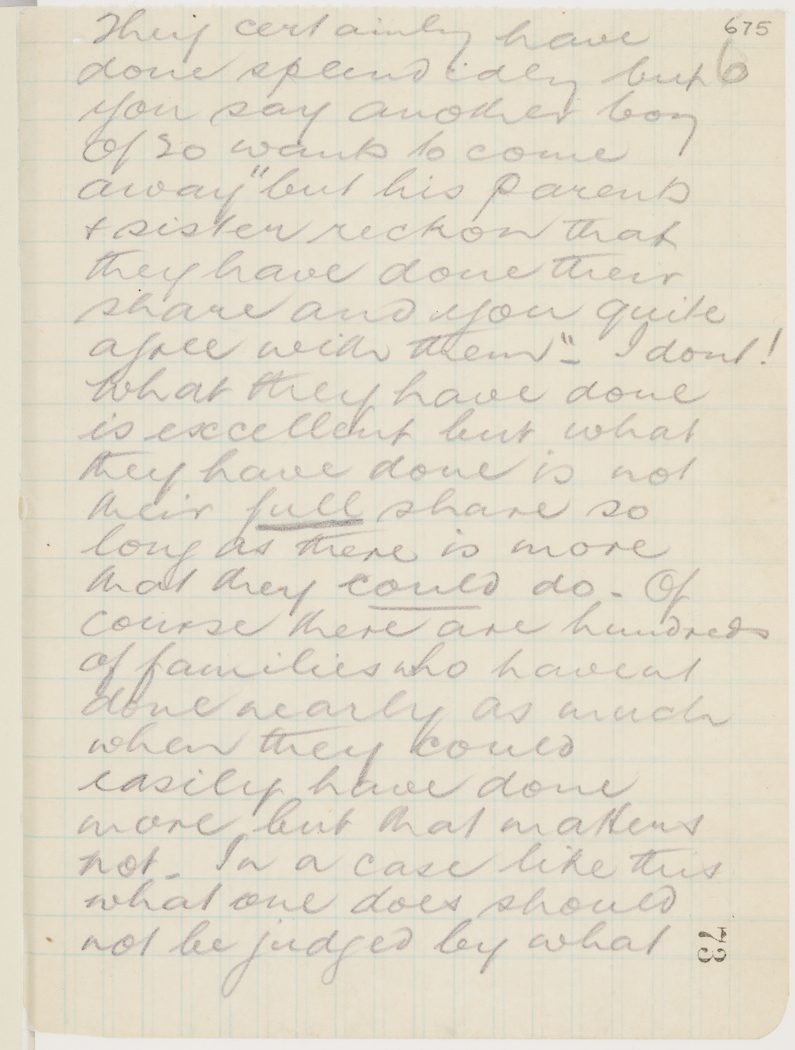 675
They certainly have
6
done splendidly but
you say another boy
of 20 wants to come
away "but his parents
+ sister reckon that
they have done their
share and you quite
agree with them" - I dont!
What they have done
is excellent but what
they have done is not
their full share so
long as there is more
that they could do - Of
course there are hundreds
of families who havent
done nearly as much
when they could
easily have done
more but that matters
not - In a case like this
what one does should
not be judged by what
73